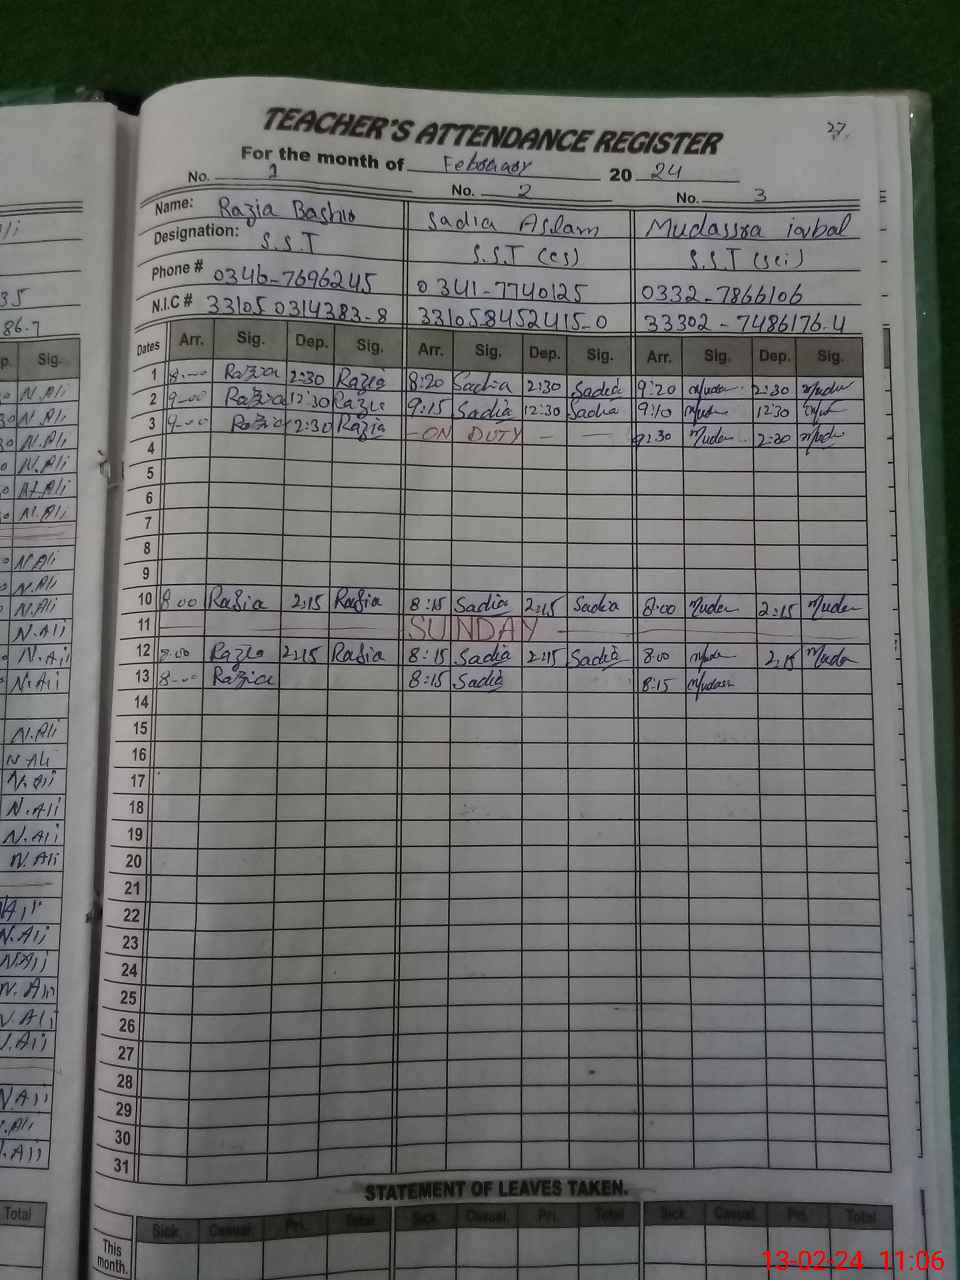 TEACHER'S ATTENDANCE REGISTER
27
For the month of February 20 24
No. 1 No. 2 No. 3
Name: Razia Bashir Sadia Aslam Mudassra iqbal
Designation: S.S.T S.S.T (cs) S.S.T (sci)
Phone # 0346-7696245 0341-7740125 0332-7866106
N.I.C # 33105 0314383-8 331058452415-0 33302-7486176-4
Dates Arr. Sig. Dep. Sig. Arr. Sig. Dep. Sig. Arr. Sig. Dep. Sig.
1 8-00 Razia 2:30 Razia 8:20 Sadia 2:30 Sadia 9:20 Mudas 2:30 Mudas
2 9-00 Razia 12:30 Razia 9:15 Sadia 12:30 Sadia 9:10 12:30
3 9-00 Razia 2:30 Razia - ON DUTY - - 9:30 Mudas 2:30 Mudas
4
5
6
7
8
9
10 8:00 Razia 2:15 Razia 8:15 Sadia 2:15 Sadia 8:00 Mudas 2:15 Mudas
11 SUNDAY
12 8:00 Razia 2:15 Razia 8:15 Sadia 2:15 Sadia 8:00 Mudas 2:15 Mudas
13 8-00 Razia 8:15 Sadia 8:15 Mudass
14
15
16
17
18
19
20
21
22
23
24
25
26
27
28
29
30
31
STATEMENT OF LEAVES TAKEN.
Total Sick. Casual. Pri. Total Sick. Casual. Pri. Total Sick. Casual. Pri. Total
This month.
13-02-24 11:06